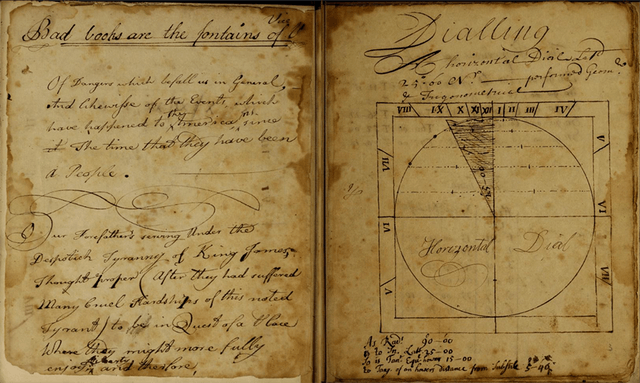 Bad books are the fontains of Vice
Of Dangers which befall us in General
and likewisse of the Events which
have happened to the Americans since
The time that they have been
a People.
Our Forefathers serving Under the
Despotick Tyranny of King James
Thought proper (After they had suffered
Many Cruel Hardships of this noted
Tyrant) to be in Quest of a Place
Where they might more fully
enjoy Liberty and therefore,
Dialling
A Horizontal Dial Latd
25-00 N performed Geom
& Trigonometrical
VIII IX X XI XII I II III IV
VII V
VI VI
V VII
Horizontal Dial
As Rad 90-00
to Sn Latt 25-00
So is Tant Equr hours 15-00
to Tang of an hours distance from Substile 5-40